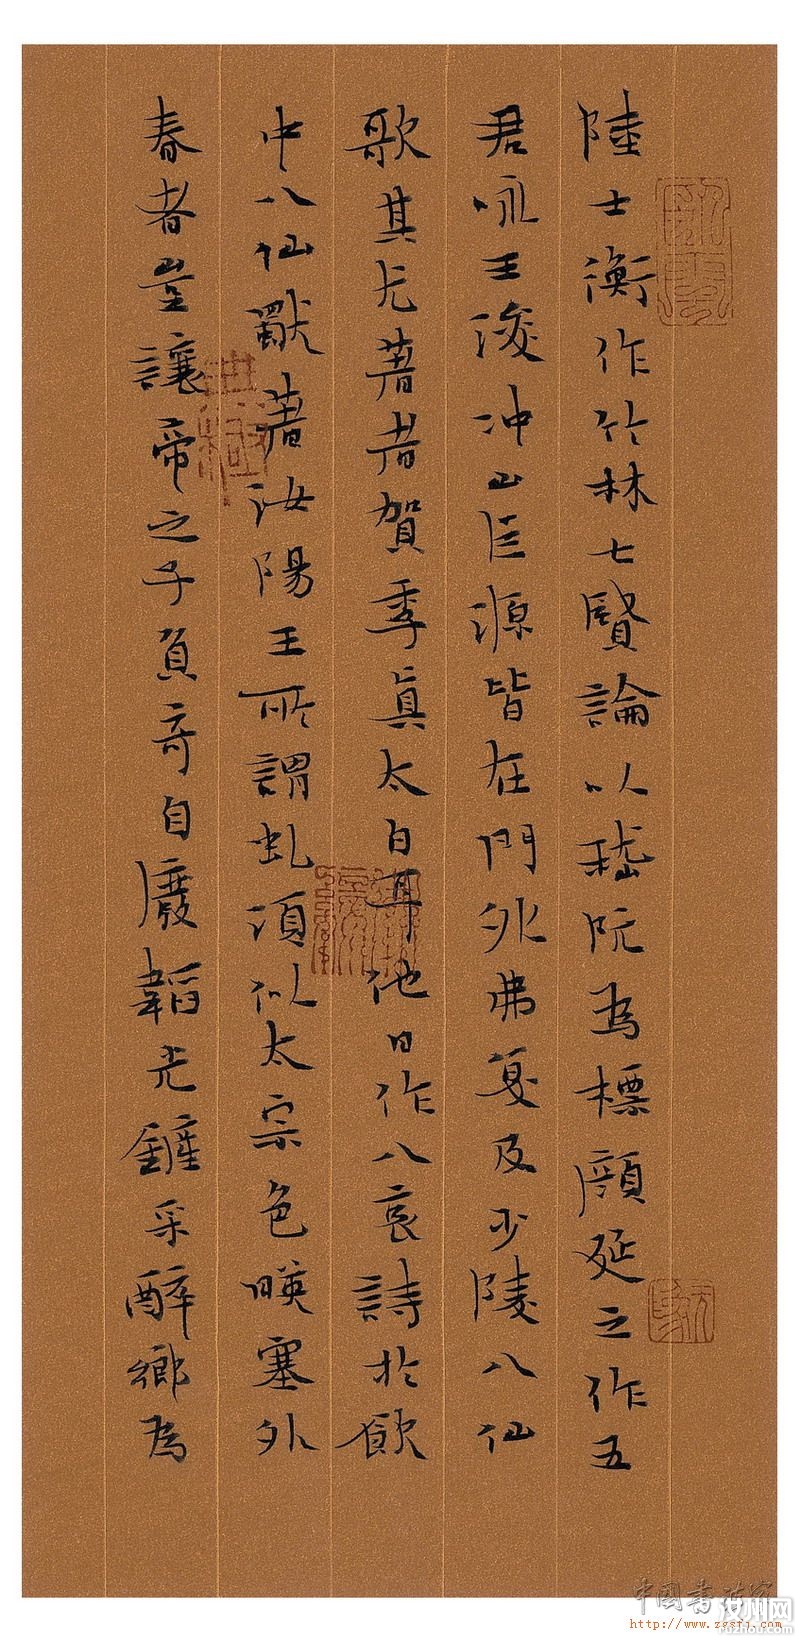 陸士衡作竹林七賢論以嵇阮為標顔延之作五
君咏王濬冲山巨源皆在門外弗复及少陵八仙
歌其尤著者賀季真太白耳他日作八哀詩於飲
中八仙獨著汝陽王所謂虬須似太宗色暎塞外
春者豈讓帝之子負奇自廢韜光鏟采醉鄉為
中國書法家
http://www.zgsfj.com
汝州网
ruzhou.com